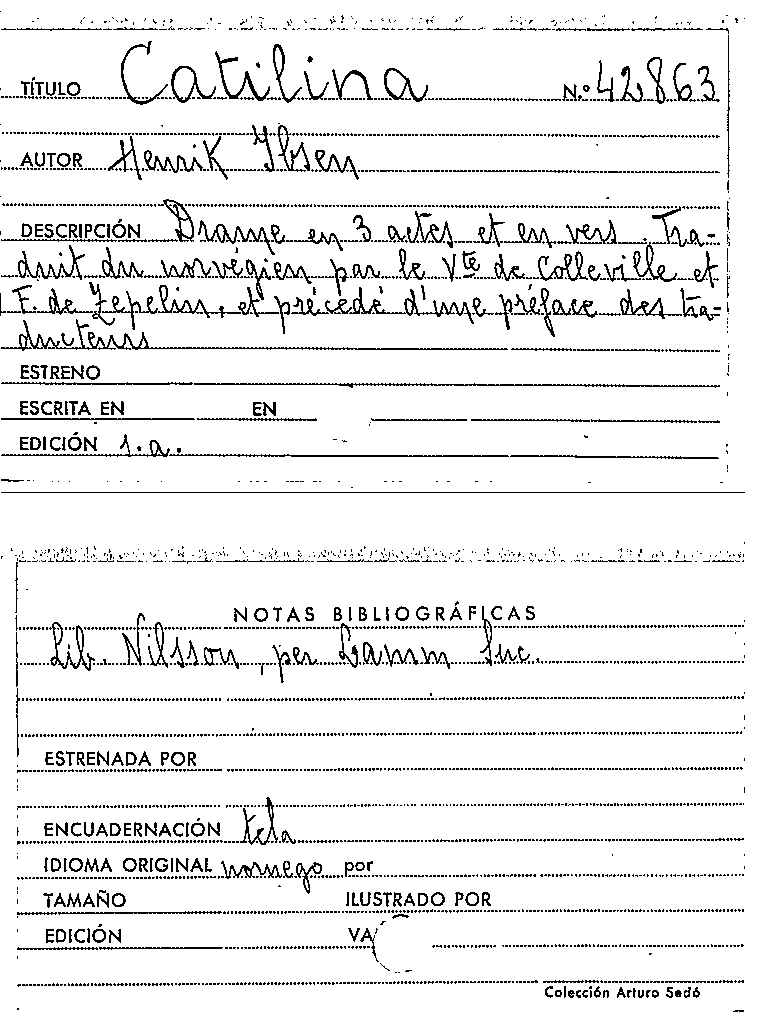 TÍTULO Catilina N.º 42863
AUTOR Henrik Ibsen
DESCRIPCIÓN Drame en 3 actes et en vers. Tra-
duit du norvégien par le Vte de Colleville et
F. de Zepelin, et précédé d'une préface des tra-
ducteurs
ESTRENO
ESCRITA EN EN
EDICIÓN s.a.
NOTAS BIBLIOGRÁFICAS
Lib. Nilsson, per Lamm Suc.
ESTRENADA POR
ENCUADERNACIÓN tela
IDIOMA ORIGINAL noruego por
TAMAÑO ILUSTRADO POR
EDICIÓN VA
Colección Arturo Sedó